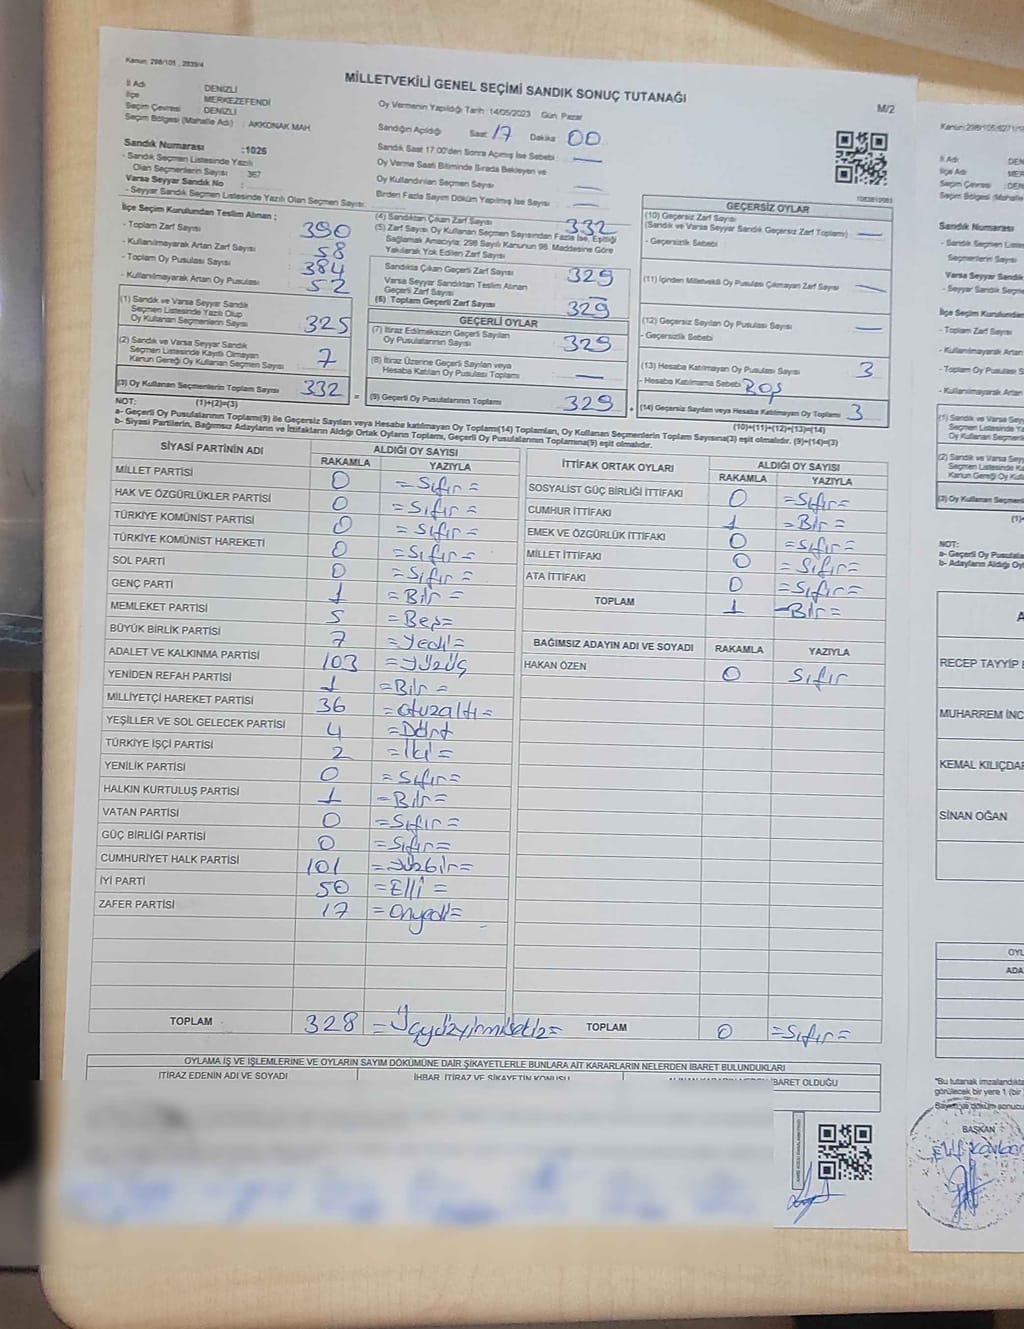 Kanun: 298/105 , 2839/4
MİLLETVEKİLİ GENEL SEÇİMİ SANDIK SONUÇ TUTANAĞI
M/2
İl Adı DENİZLİ
İlçe MERKEZEFENDİ
Seçim Çevresi : DENİZLİ
Seçim Bölgesi (Mahalle Adı) : AKKONAK MAH.
Oy Vermenin Yapıldığı Tarih : 14/05/2023 Gün: Pazar
Sandığın Açıldığı Saat: 17 Dakika: 00
Sandık Saat 17.00'den Sonra Açılmış İse Sebebi : —
Oy Verme Saati Bitiminde Sırada Bekleyen ve
Oy Kullandırılan Seçmen Sayısı —
Birden Fazla Sayım Döküm Yapılmış İse Sayısı : —
Sandık Numarası :1026
- Sandık Seçmen Listesinde Yazılı
Olan Seçmenlerin Sayısı : 367
Varsa Seyyar Sandık No :
- Seyyar Sandık Seçmen Listesinde Yazılı Olan Seçmen Sayısı:
İlçe Seçim Kurulundan Teslim Alınan ;
- Toplam Zarf Sayısı : 390
- Kullanılmayarak Artan Zarf Sayısı : 58
- Toplam Oy Pusulası Sayısı : 384
- Kullanılmayarak Artan Oy Pusulası : 52
(1) Sandık ve Varsa Seyyar Sandık
Seçmen Listesinde Yazılı Olup
Oy Kullanan Seçmenlerin Sayısı : 325
(2) Sandık ve Varsa Seyyar Sandık
Seçmen Listesinde Kayıtlı Olmayan
Kanun Gereği Oy Kullanan Seçmen Sayısı : 7
(3) Oy Kullanan Seçmenlerin Toplam Sayısı : 332
(1)+(2)=(3)
(4) Sandıktan Çıkan Zarf Sayısı 332
(5) Zarf Sayısı Oy Kullanan Seçmen Sayısından Fazla İse, Eşitliği
Sağlamak Amacıyla; 298 Sayılı Kanunun 98. Maddesine Göre
Yakılarak Yok Edilen Zarf Sayısı :
Sandıkta Çıkan Geçerli Zarf Sayısı 329
Varsa Seyyar Sandıktan Teslim Alınan
Geçerli Zarf Sayısı —
(6) Toplam Geçerli Zarf Sayısı 329
GEÇERLİ OYLAR
(7) İtiraz Edilmeksizin Geçerli Sayılan
Oy Pusulalarının Sayısı : 329
(8) İtiraz Üzerine Geçerli Sayılan veya
Hesaba Katılan Oy Pusulası Toplamı : —
= (9) Geçerli Oy Pusulalarının Toplamı 329
GEÇERSİZ OYLAR
(10) Geçersiz Zarf Sayısı
(Sandık ve Varsa Seyyar Sandık Geçersiz Zarf Toplamı) : —
- Geçersizlik Sebebi :
(11) İçinden Milletvekili Oy Pusulası Çıkmayan Zarf Sayısı : —
(12) Geçersiz Sayılan Oy Pusulası Sayısı : —
- Geçersizlik Sebebi :
(13) Hesaba Katılmayan Oy Pusulası Sayısı : 3
- Hesaba Katılmama Sebebi: Boş
+ (14) Geçersiz Sayılan veya Hesaba Katılmayan Oy Toplamı : 3
(10)+(11)+(12)+(13)=(14)
NOT:
a- Geçerli Oy Pusulalarının Toplamı(9) ile Geçersiz Sayılan veya Hesaba katılmayan Oy Toplamı(14) Toplamları, Oy Kullanan Seçmenlerin Toplam Sayısına(3) eşit olmalıdır. (9)+(14)=(3)
b- Siyasi Partilerin, Bağımsız Adayların ve İttifakların Aldığı Ortak Oyların Toplamı, Geçerli Oy Pusulalarının Toplamına(9) eşit olmalıdır.
SİYASİ PARTİNİN ADI ALDIĞI OY SAYISI
RAKAMLA YAZIYLA
MİLLET PARTİSİ 0 =Sıfır=
HAK VE ÖZGÜRLÜKLER PARTİSİ 0 =Sıfır=
TÜRKİYE KOMÜNİST PARTİSİ 0 =Sıfır=
TÜRKİYE KOMÜNİST HAREKETİ 0 =Sıfır=
SOL PARTİ 0 =Sıfır=
GENÇ PARTİ 1 =Bir=
MEMLEKET PARTİSİ 5 =Beş=
BÜYÜK BİRLİK PARTİSİ 7 =Yedi=
ADALET VE KALKINMA PARTİSİ 103 =Yüzüç
YENİDEN REFAH PARTİSİ 1 =Bir=
MİLLİYETÇİ HAREKET PARTİSİ 36 =Otuzaltı=
YEŞİLLER VE SOL GELECEK PARTİSİ 4 =Dört
TÜRKİYE İŞÇİ PARTİSİ 2 =İki=
YENİLİK PARTİSİ 0 =Sıfır=
HALKIN KURTULUŞ PARTİSİ 1 =Bir=
VATAN PARTİSİ 0 =Sıfır=
GÜÇ BİRLİĞİ PARTİSİ 0 =Sıfır=
CUMHURİYET HALK PARTİSİ 101 =Yüzbir=
İYİ PARTİ 50 =Elli=
ZAFER PARTİSİ 17 =Onyedi=
TOPLAM 328 =Üçyüzyirmisekiz=
İTTİFAK ORTAK OYLARI ALDIĞI OY SAYISI
RAKAMLA YAZIYLA
SOSYALİST GÜÇ BİRLİĞİ İTTİFAKI 0 =Sıfır=
CUMHUR İTTİFAKI 1 =Bir=
EMEK VE ÖZGÜRLÜK İTTİFAKI 0 =Sıfır=
MİLLET İTTİFAKI 0 =Sıfır=
ATA İTTİFAKI 0 =Sıfır=
TOPLAM 1 =Bir=
BAĞIMSIZ ADAYIN ADI VE SOYADI RAKAMLA YAZIYLA
HAKAN ÖZEN 0 Sıfır
TOPLAM 0 =Sıfır=
OYLAMA İŞ VE İŞLEMLERİNE VE OYLARIN SAYIM DÖKÜMÜNE DAİR ŞİKAYETLERLE BUNLARA AİT KARARLARIN NELERDEN İBARET BULUNDUKLARI
İTİRAZ EDENİN ADI VE SOYADI İHBAR, İTİRAZ VE ŞİKAYETİN KONUSU İBARET OLDUĞU
İl Adı DEN
İlçe MER
Seçim Çevresi DEN
Seçim Bölgesi (Mahalle
Sandık Numarası
- Sandık Seçmen Listes
Seçmenlerin Sayısı
Varsa Seyyar Sandık
- Seyyar Sandık Seçme
İlçe Seçim Kurulundan
- Toplam Zarf Sayısı
- Kullanılmayarak Artan
- Toplam Oy Pusulası
- Kullanılmayarak Artan
(1) Sandık ve Varsa Sey
Seçmen Listesinde
Oy Kullanan Seçmen
(2) Sandık ve Varsa Sey
Seçmen Listesinde
Kanun Gereği Oy K
(3) Oy Kullanan Seçmen
(1)+
NOT:
a- Geçerli Oy Pusula
b- Adayların Aldığı Oy
A
RECEP TAYYİP E
MUHARREM İNC
KEMAL KILIÇDA
SİNAN OĞAN
OYL
ADA
"Bu tutanak imzalandıkta
görülecek bir yere 1 (bir
Sayım ve döküm sonucu
BAŞKAN